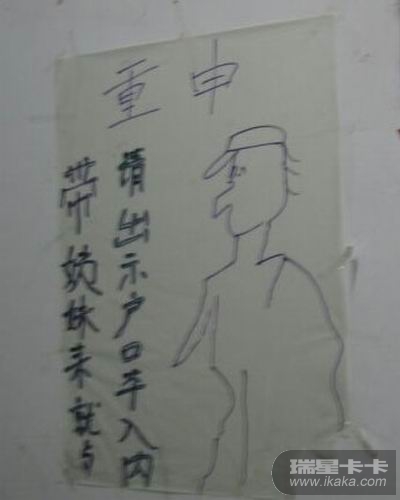 重申
请出示户口平入内
带妹来就与
瑞星卡卡
www.ikaka.com